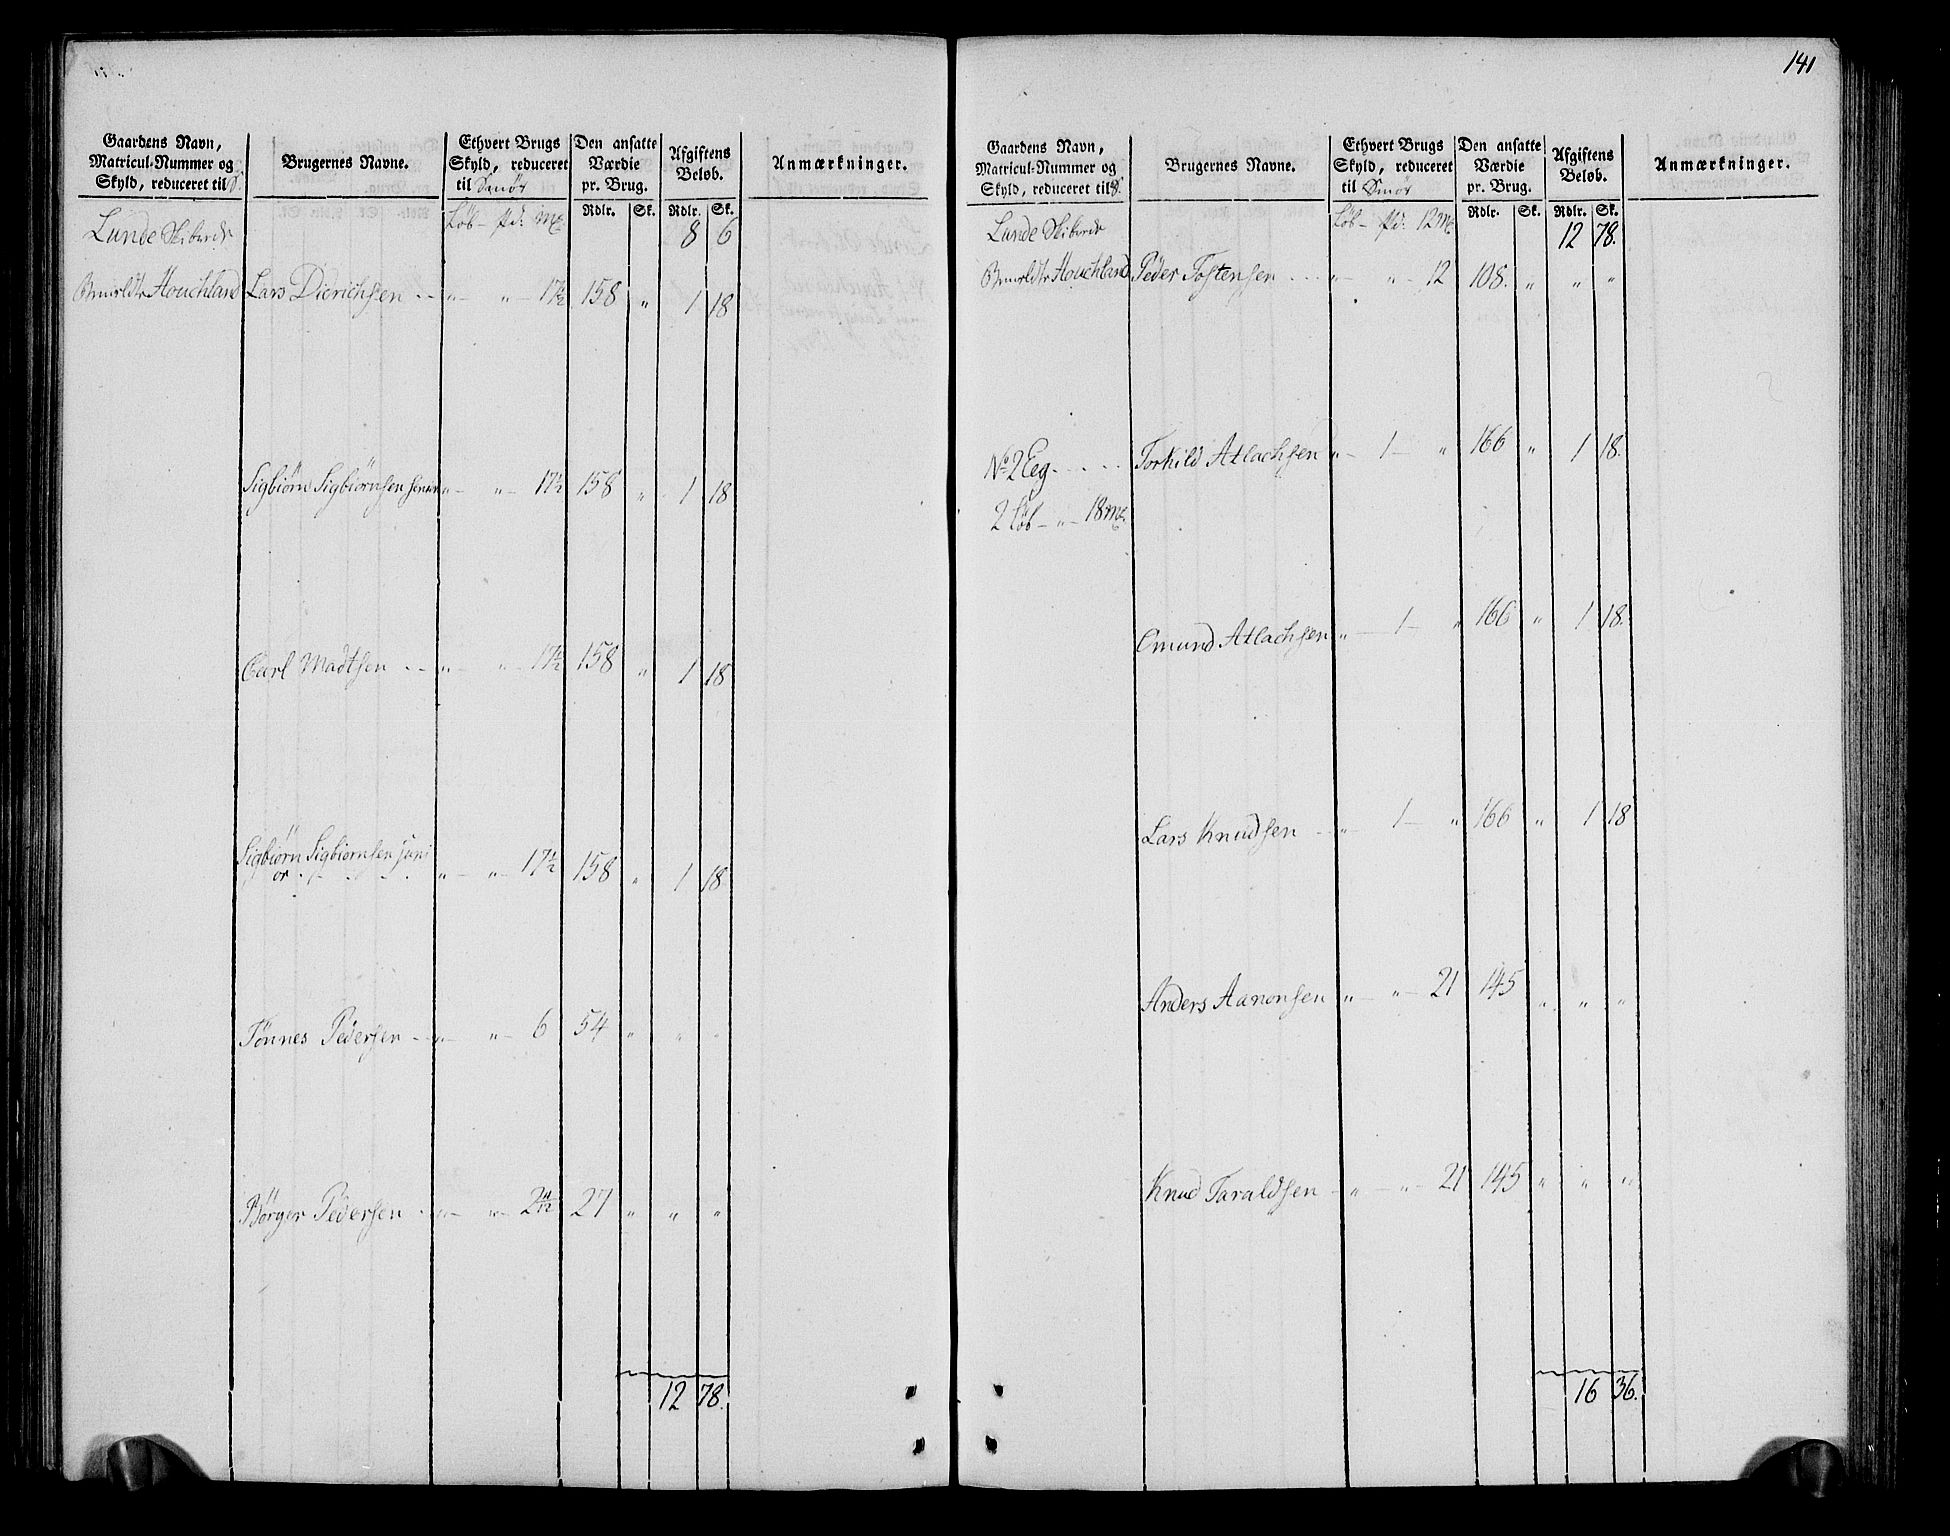 141
Gaardens Navn,
Matricul-Nummer og
Skyld, reduceret til S.
Brugernes Navne.
Ethvert Brugs
Skyld, reduceret
til Smör
Den ansatte
Værdie
pr. Brug.
Afgiftens
Beløb.
Anmærkninger.
Rdlr. Sk. Rdlr. Sk.
Lunde Skibrede Löb - pd: mk 8 6
Houchland Lars Dierichsen - - „ - „ - 17½ 158 „ 1 18
Sigbiörn Sigbiörnsen senior „ - „ - 17½ 158 „ 1 18
Carl Madtsen - - „ - „ - 17½ 158 „ 1 18
Sigbiörn Sigbiörnsen juni
or „ - „ - 17½ 158 „ 1 18.
Tönnes Pedersen - „ - „ - 6 54 „ „ „
Börger Pedersen - „ - „ - 2 27 „ „ „
12 78.
Gaardens Navn,
Matricul-Nummer og
Skyld, reduceret til S.
Brugernes Navne.
Ethvert Brugs
Skyld, reduceret
til Smör
Den ansatte
Værdie
pr. Brug.
Afgiftens
Beløb.
Anmærkninger.
Rdlr. Sk. Rdlr. Sk.
Lunde Skibrede Löb - pd: 12 mk 12 78.
Houchland Peder Tostensen - - - „ - „ - 12 108. „ „ „
No 2 Eeg - - - - Torkild Atlachsen „ - 1 - „ 166 „ 1 18.
2 Löb - „ - 18 mk.
Omund Atlachsen „ - 1 - „ 166 „ 1 18.
Lars Knudsen - „ - 1 - „ 166 „ 1 18
Anders Aanonsen „ - „ - 21 145 „ „ „
Knud Taraldsen - „ - „ - 21 145 „ „ „
16 36.